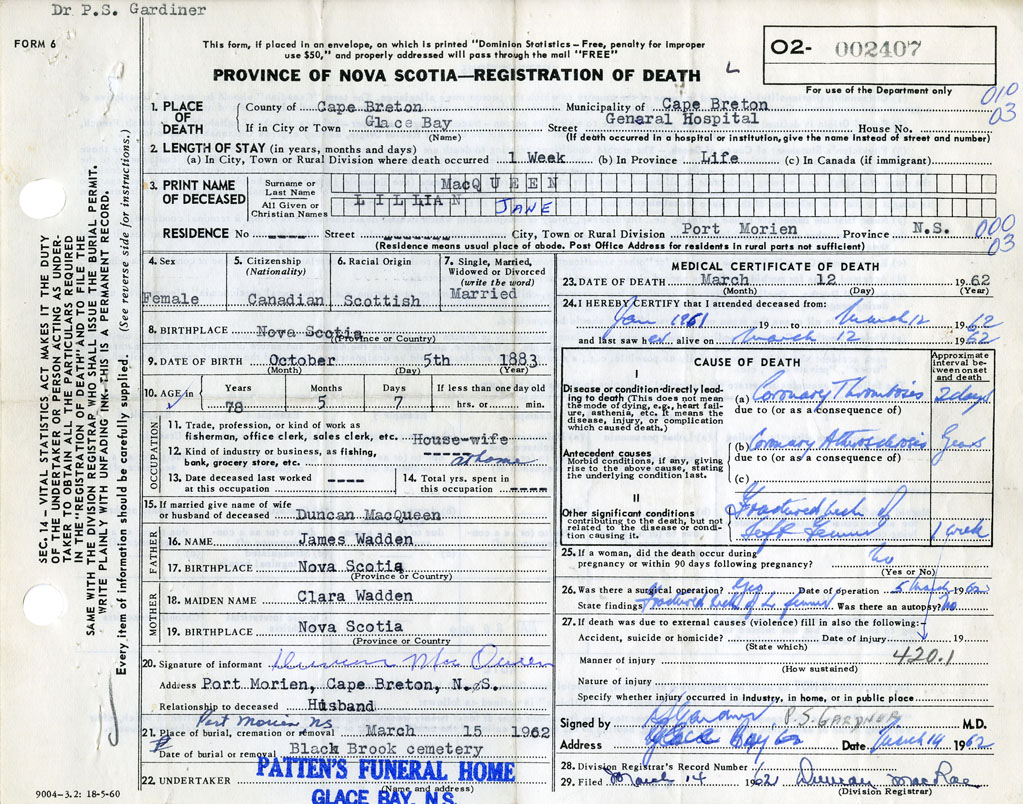 Dr P.S. Gardiner
FORM 6
This form, if placed in an envelope, on which is printed "Dominion Statistics – Free, penalty for improper
use $50," and properly addressed will pass through the mail "FREE"
O2- 002407
PROVINCE OF NOVA SCOTIA—REGISTRATION OF DEATH
For use of the Department only
010
03
1. PLACE OF DEATH
County of Cape Breton Municipality of Cape Breton
If in City or Town Glace Bay Street General Hospital House No.
(Name) (If death occurred in a hospital or institution, give the name instead of street and number)
2. LENGTH OF STAY (in years, months and days)
(a) In City, Town or Rural Division where death occurred 1 Week (b) In Province Life (c) In Canada (if immigrant)
3. PRINT NAME OF DECEASED
Surname or Last Name MacQUEEN
All Given or Christian Names LILLIAN JANE
RESIDENCE No ---- Street ------- City, Town or Rural Division Port Morien Province N.S.
000
03
(Residence means usual place of abode. Post Office Address for residents in rural parts not sufficient)
4. Sex
Female
5. Citizenship
(Nationality)
Canadian
6. Racial Origin
Scottish
7. Single, Married,
Widowed or Divorced
(write the word)
Married
8. BIRTHPLACE Nova Scotia
(Province or Country)
9. DATE OF BIRTH October 5th 1883
(Month) (Day) (Year)
10. AGE in Years Months Days If less than one day old
78 5 7 hrs. or min.
OCCUPATION
11. Trade, profession, or kind of work as
fisherman, office clerk, sales clerk, etc. House-wife
12. Kind of industry or business, as fishing,
bank, grocery store, etc. ------ at home
13. Date deceased last worked
at this occupation ----
14. Total yrs. spent in
this occupation ----
15. If married give name of wife
or husband of deceased Duncan MacQueen
FATHER
16. NAME James Wadden
17. BIRTHPLACE Nova Scotia
(Province or Country)
MOTHER
18. MAIDEN NAME Clara Wadden
19. BIRTHPLACE Nova Scotia
(Province or Country
20. Signature of informant Duncan MacQueen
Address Port Morien, Cape Breton, N.S.
Relationship to deceased Husband
Port Morien NS
21. Place of burial, cremation or removal March 15 1962
Date of burial or removal Black Brook cemetery
22. UNDERTAKER PATTEN'S FUNERAL HOME
(Name and address)
GLACE BAY, N.S.
9004–3.2: 18-5-60
MEDICAL CERTIFICATE OF DEATH
23. DATE OF DEATH March 12 1962
(Month) (Day) (Year)
24. I HEREBY CERTIFY that I attended deceased from:
Jan 1961 19 to March 12 1962
and last saw her alive on March 12 1962
CAUSE OF DEATH
Approximate interval between onset and death
I
Disease or condition directly leading to death (This does not mean the mode of dying, e.g., heart failure, asthenia, etc. It means the disease, injury, or complication which caused death.)
(a) Coronary Thrombosis 2 days
due to (or as a consequence of)
Antecedent causes
Morbid conditions, if any, giving rise to the above cause, stating the underlying condition last.
(b) Coronary Atherosclerosis Years
due to (or as a consequence of)
(c)
II
Other significant conditions
contributing to the death, but not related to the disease or condition causing it.
Fractured neck of
left femur 1 week
25. If a woman, did the death occur during
pregnancy or within 90 days following pregnancy? No
(Yes or No)
26. Was there a surgical operation? Yes Date of operation 5 March 1962
State findings Fractured neck of L femur Was there an autopsy? No
27. If death was due to external causes (violence) fill in also the following:
Accident, suicide or homicide? Date of injury 19
(State which)
420.1
Manner of injury
(How sustained)
Nature of injury
Specify whether injury occurred in Industry, in home, or in public place
Signed by PS Gardner P.S. GARDNER M.D.
Address Glace Bay Date March 14 1962
28. Division Registrar's Record Number
29. Filed March 14 1962 Duncan MacRae
(Division Registrar)
SEC. 14 – VITAL STATISTICS ACT MAKES IT THE DUTY
OF THE UNDERTAKER OR PERSON ACTING AS UNDER-
TAKER TO OBTAIN ALL THE PARTICULARS REQUIRED
IN THE "REGISTRATION OF DEATH" AND TO FILE THE
SAME WITH THE DIVISION REGISTRAR WHO SHALL ISSUE THE BURIAL PERMIT.
WRITE PLAINLY WITH UNFADING INK. THIS IS A PERMANENT RECORD.
Every item of information should be carefully supplied. (See reverse side for instructions.)